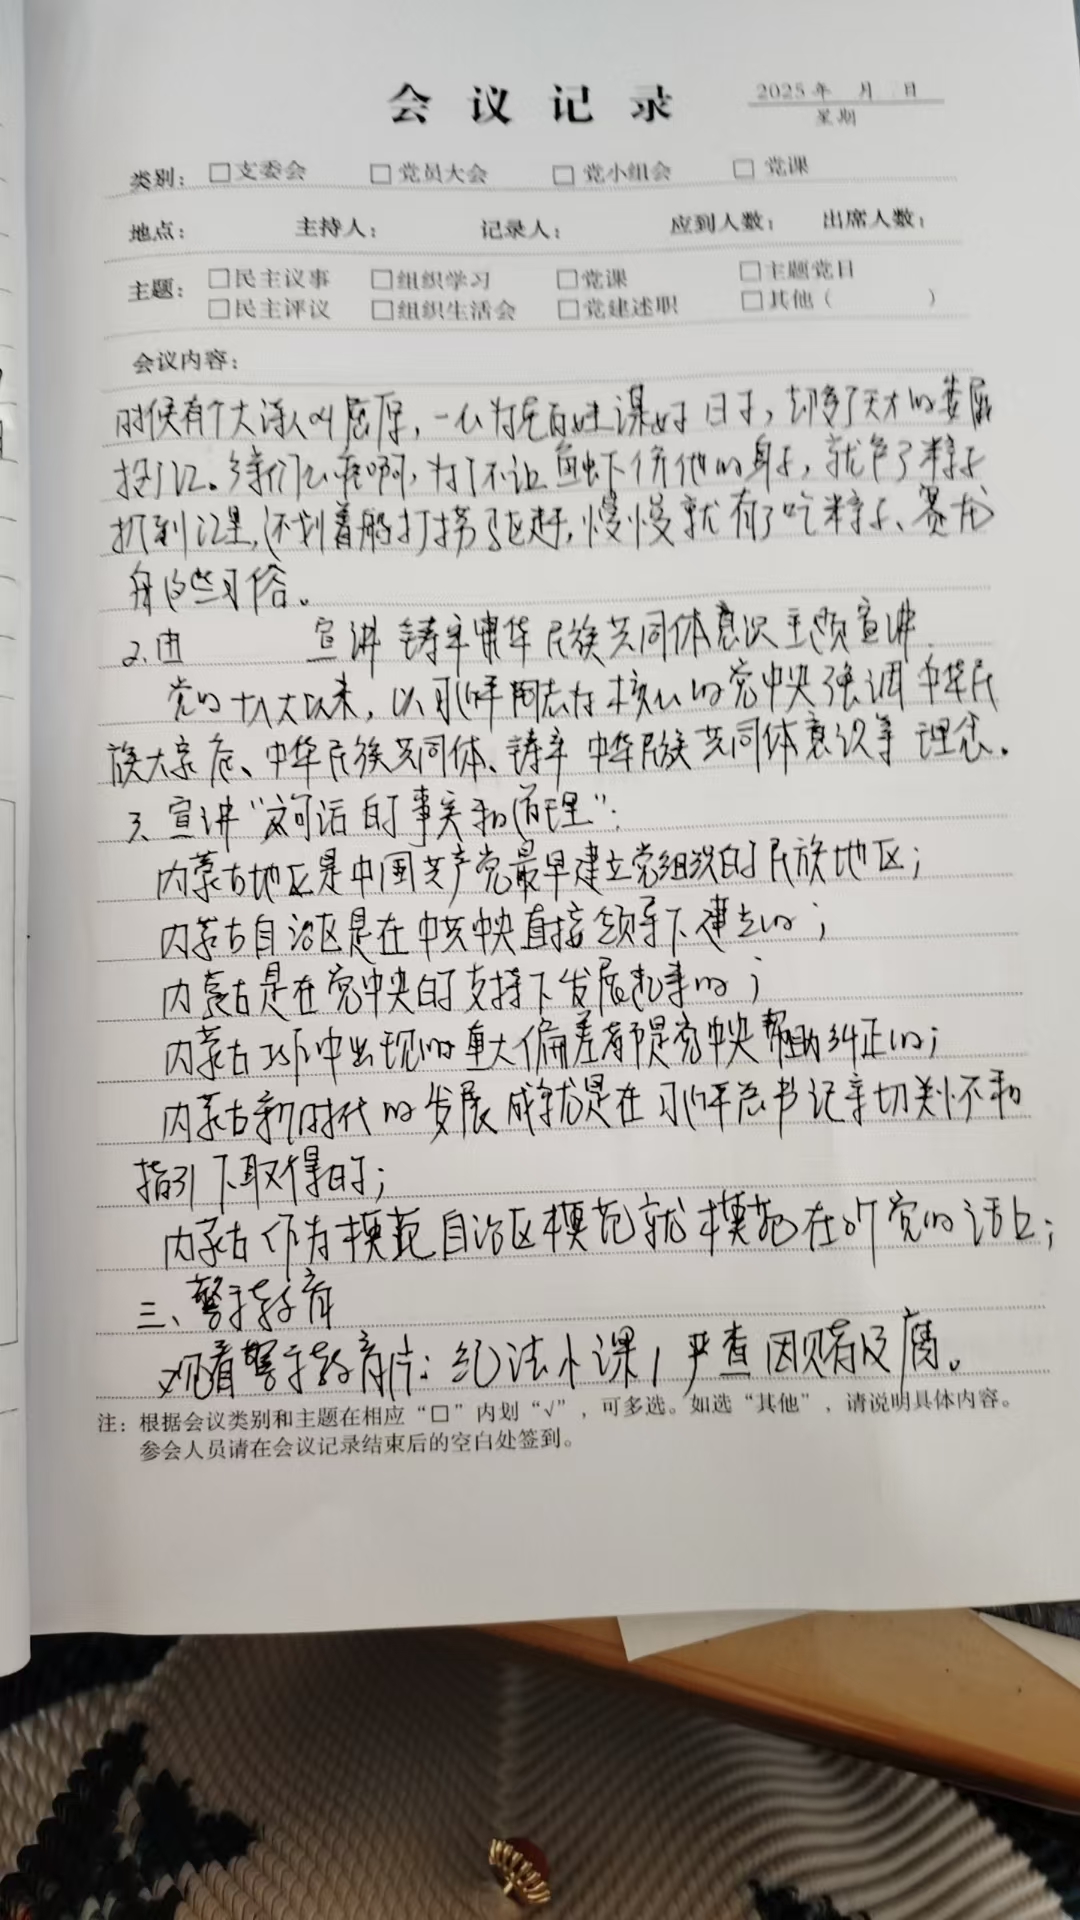 会议记录
2025年 月 日
星期
类别： □支委会 □党员大会 □党小组会 □党课
地点： 主持人： 记录人： 应到人数： 出席人数：
主题： □民主议事 □组织学习 □党课 □主题党日
□民主评议 □组织生活会 □党建述职 □其他（ ）
会议内容：
时候有个大诗人叫屈原，一心为老百姓谋好日子，却受了天大的委屈
投了江。乡亲们心疼啊，为了不让鱼虾下伤他的身子，就包了粽子
扒到江里，还划着船打捞驱赶，慢慢就有了吃粽子、赛龙
舟这些习俗。
2.由 宣讲铸牢中华民族共同体意识主题宣讲.
党的十八大以来，以习近平同志为核心的党中央强调中华民
族大家庭、中华民族共同体、铸牢中华民族共同体意识等理念。
3.宣讲“感党恩的事实和道理”：
内蒙古地区是中国共产党最早建立党组织的民族地区；
内蒙古自治区是在中共中央直接领导下建立的；
内蒙古是在党中央的支持下发展起来的；
内蒙古工作中出现的重大偏差都是党中央帮助纠正的；
内蒙古新时代的发展成就是在习近平总书记亲切关怀和
指引下取得的；
内蒙古作为模范自治区模范就模范在听党的话上；
三、警示教育
观看警示教育片：纪法小课 | 严查因赌贪腐。
注：根据会议类别和主题在相应“□”内划“√”，可多选。如选“其他”，请说明具体内容。
参会人员请在会议记录结束后的空白处签到。